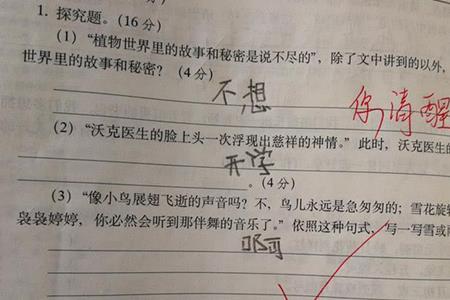 1. 探究题。(16 分)
(1) “植物世界里的故事和秘密是说不尽的”, 除了文中讲到的以外,
世界里的故事和秘密? (4 分)
不想
你清醒
(2) “沃克医生的脸上头一次浮现出慈祥的神情。” 此时, 沃克医生的
开学
。(4 分)
(3) “像小鸟展翅飞逝的声音吗? 不, 鸟儿永远是急匆匆的; 雪花旋转
袅袅婷婷, 你必然会听到那伴舞的音乐了。” 依照这种句式, 写一写雪或雨